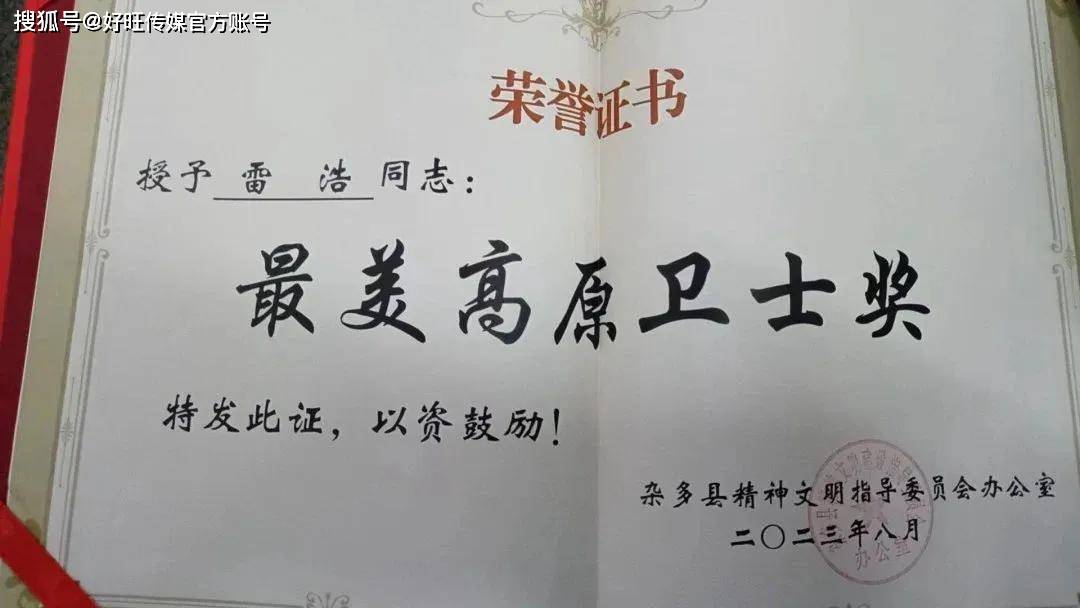 搜狐号@好旺传媒官方账号
荣誉证书
授予 雷 浩 同志：
最美高原卫士奖
特发此证，以资鼓励！
杂多县精神文明指导委员会办公室
二〇二三年八月
办公室